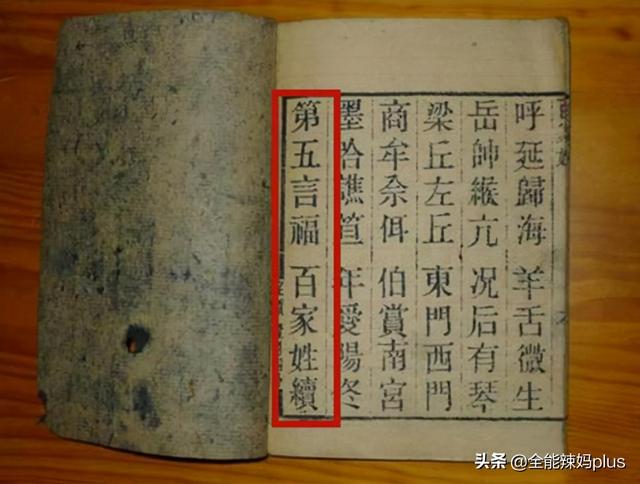 呼延歸海 羊舌微生
岳帥緱亢 况后有琴
梁丘左丘 東門西門
商牟佘佴 伯賞南宮
墨哈譙笪 年愛陽佟
第五言福 百家姓續
头条 @全能辣妈plus